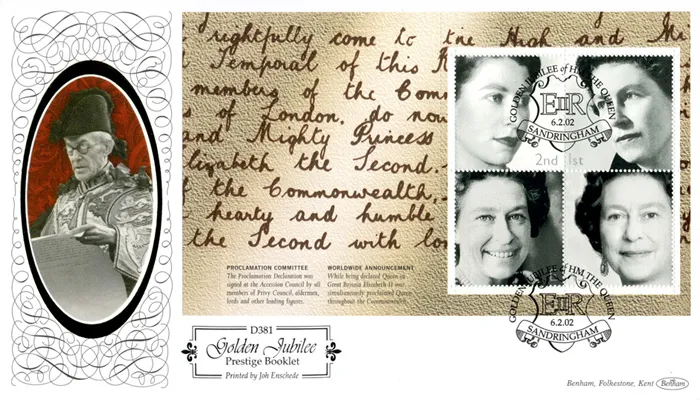 rightfully come to the High and Mi
Temporal of this R
members of the Com
s of London, do now
and Mighty Princess
lizabeth the Second.
f the Commonwealth,
hearty and humble
the Second with lo
PROCLAMATION COMMITTEE
The Proclamation Declaration was
signed at the Accession Council by all
members of Privy Council, aldermen,
lords and other leading figures.
WORLDWIDE ANNOUNCEMENT
While being declared Queen in
Great Britain Elizabeth II was
simultaneously proclaimed Queen
throughout the Commonwealth.
GOLDEN JUBILEE of HM THE QUEEN
EIIR
6.2.02
SANDRINGHAM
2nd
1st
GOLDEN JUBILEE of HM THE QUEEN
EIIR
6.2.02
SANDRINGHAM
D381
Golden Jubilee
Prestige Booklet
Printed by Joh Enschede
Benham, Folkestone, Kent
Benham